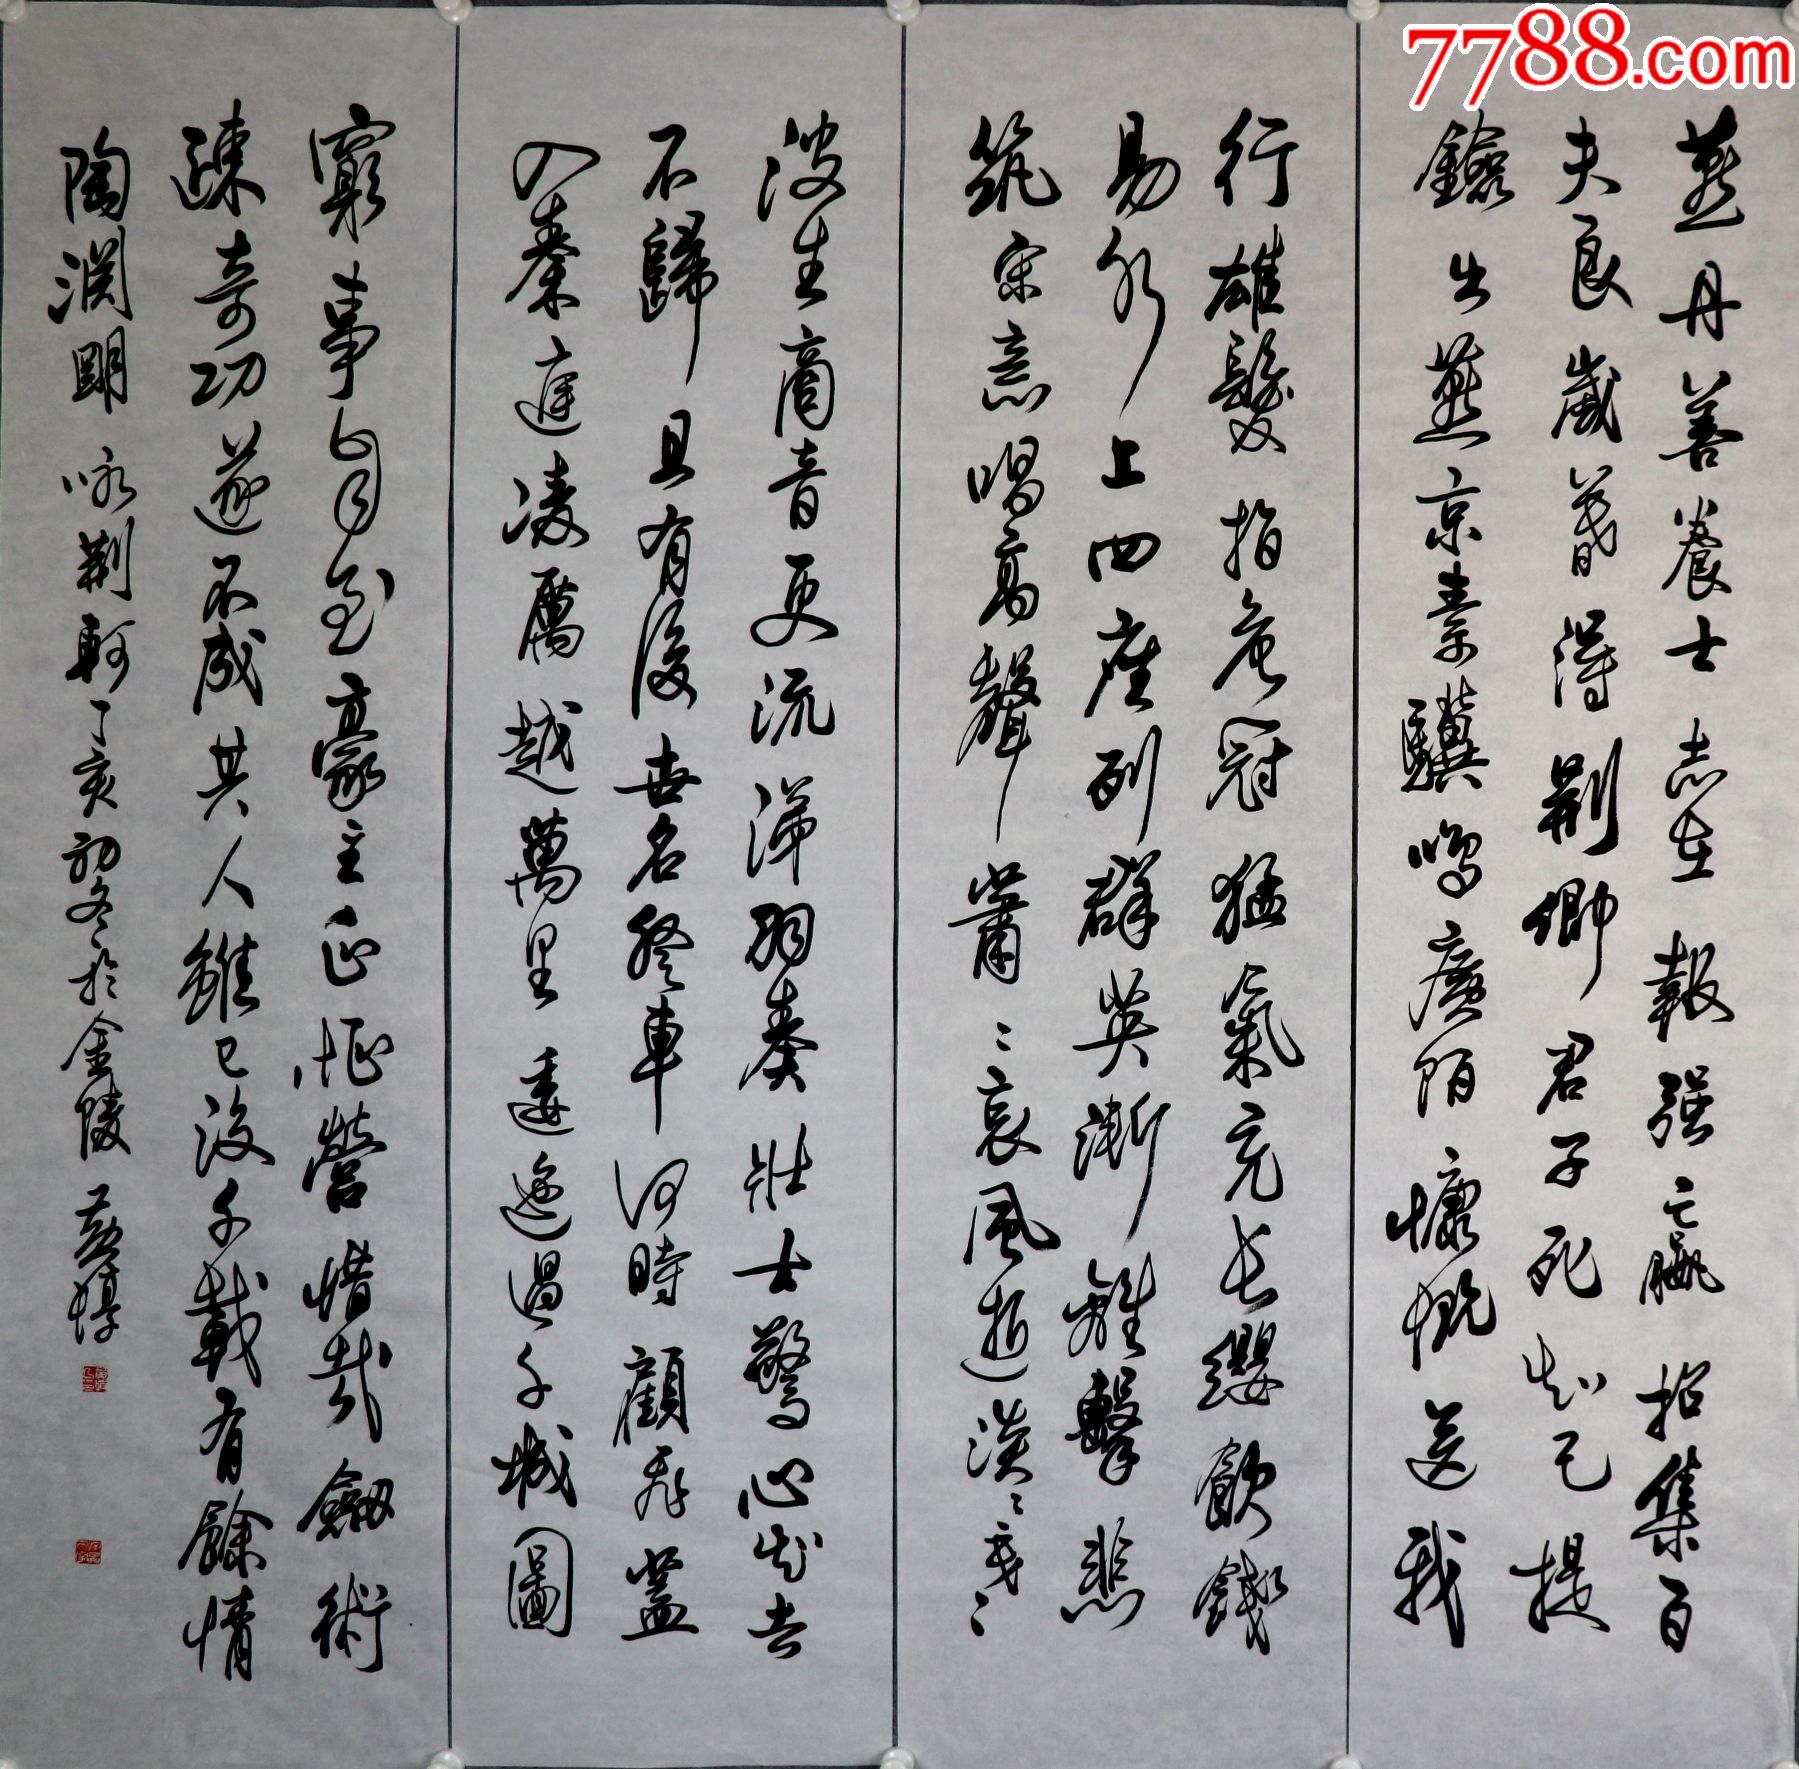 7788.com
燕丹善養士志在報强嬴招集百
夫良歲暮得荆卿君子死知己提
鐱出燕京素驥鳴廣陌慷慨送我
行雄髮指危冠猛氣充長纓飲餞
易水上四座列群英漸離擊悲
筑宋意唱高聲蕭〻哀風逝淡〻寒
波生商音更流涕羽奏壯士驚心知去
不歸且有後世名登車何時顧飛蓋
入秦庭凌厲越萬里逶迤過千城圖
窮事自至豪主正怔營惜哉劒術
疎奇功遂不成其人雖已没千載有餘情
陶淵明咏荆軻丁亥初冬於金陵黄惇